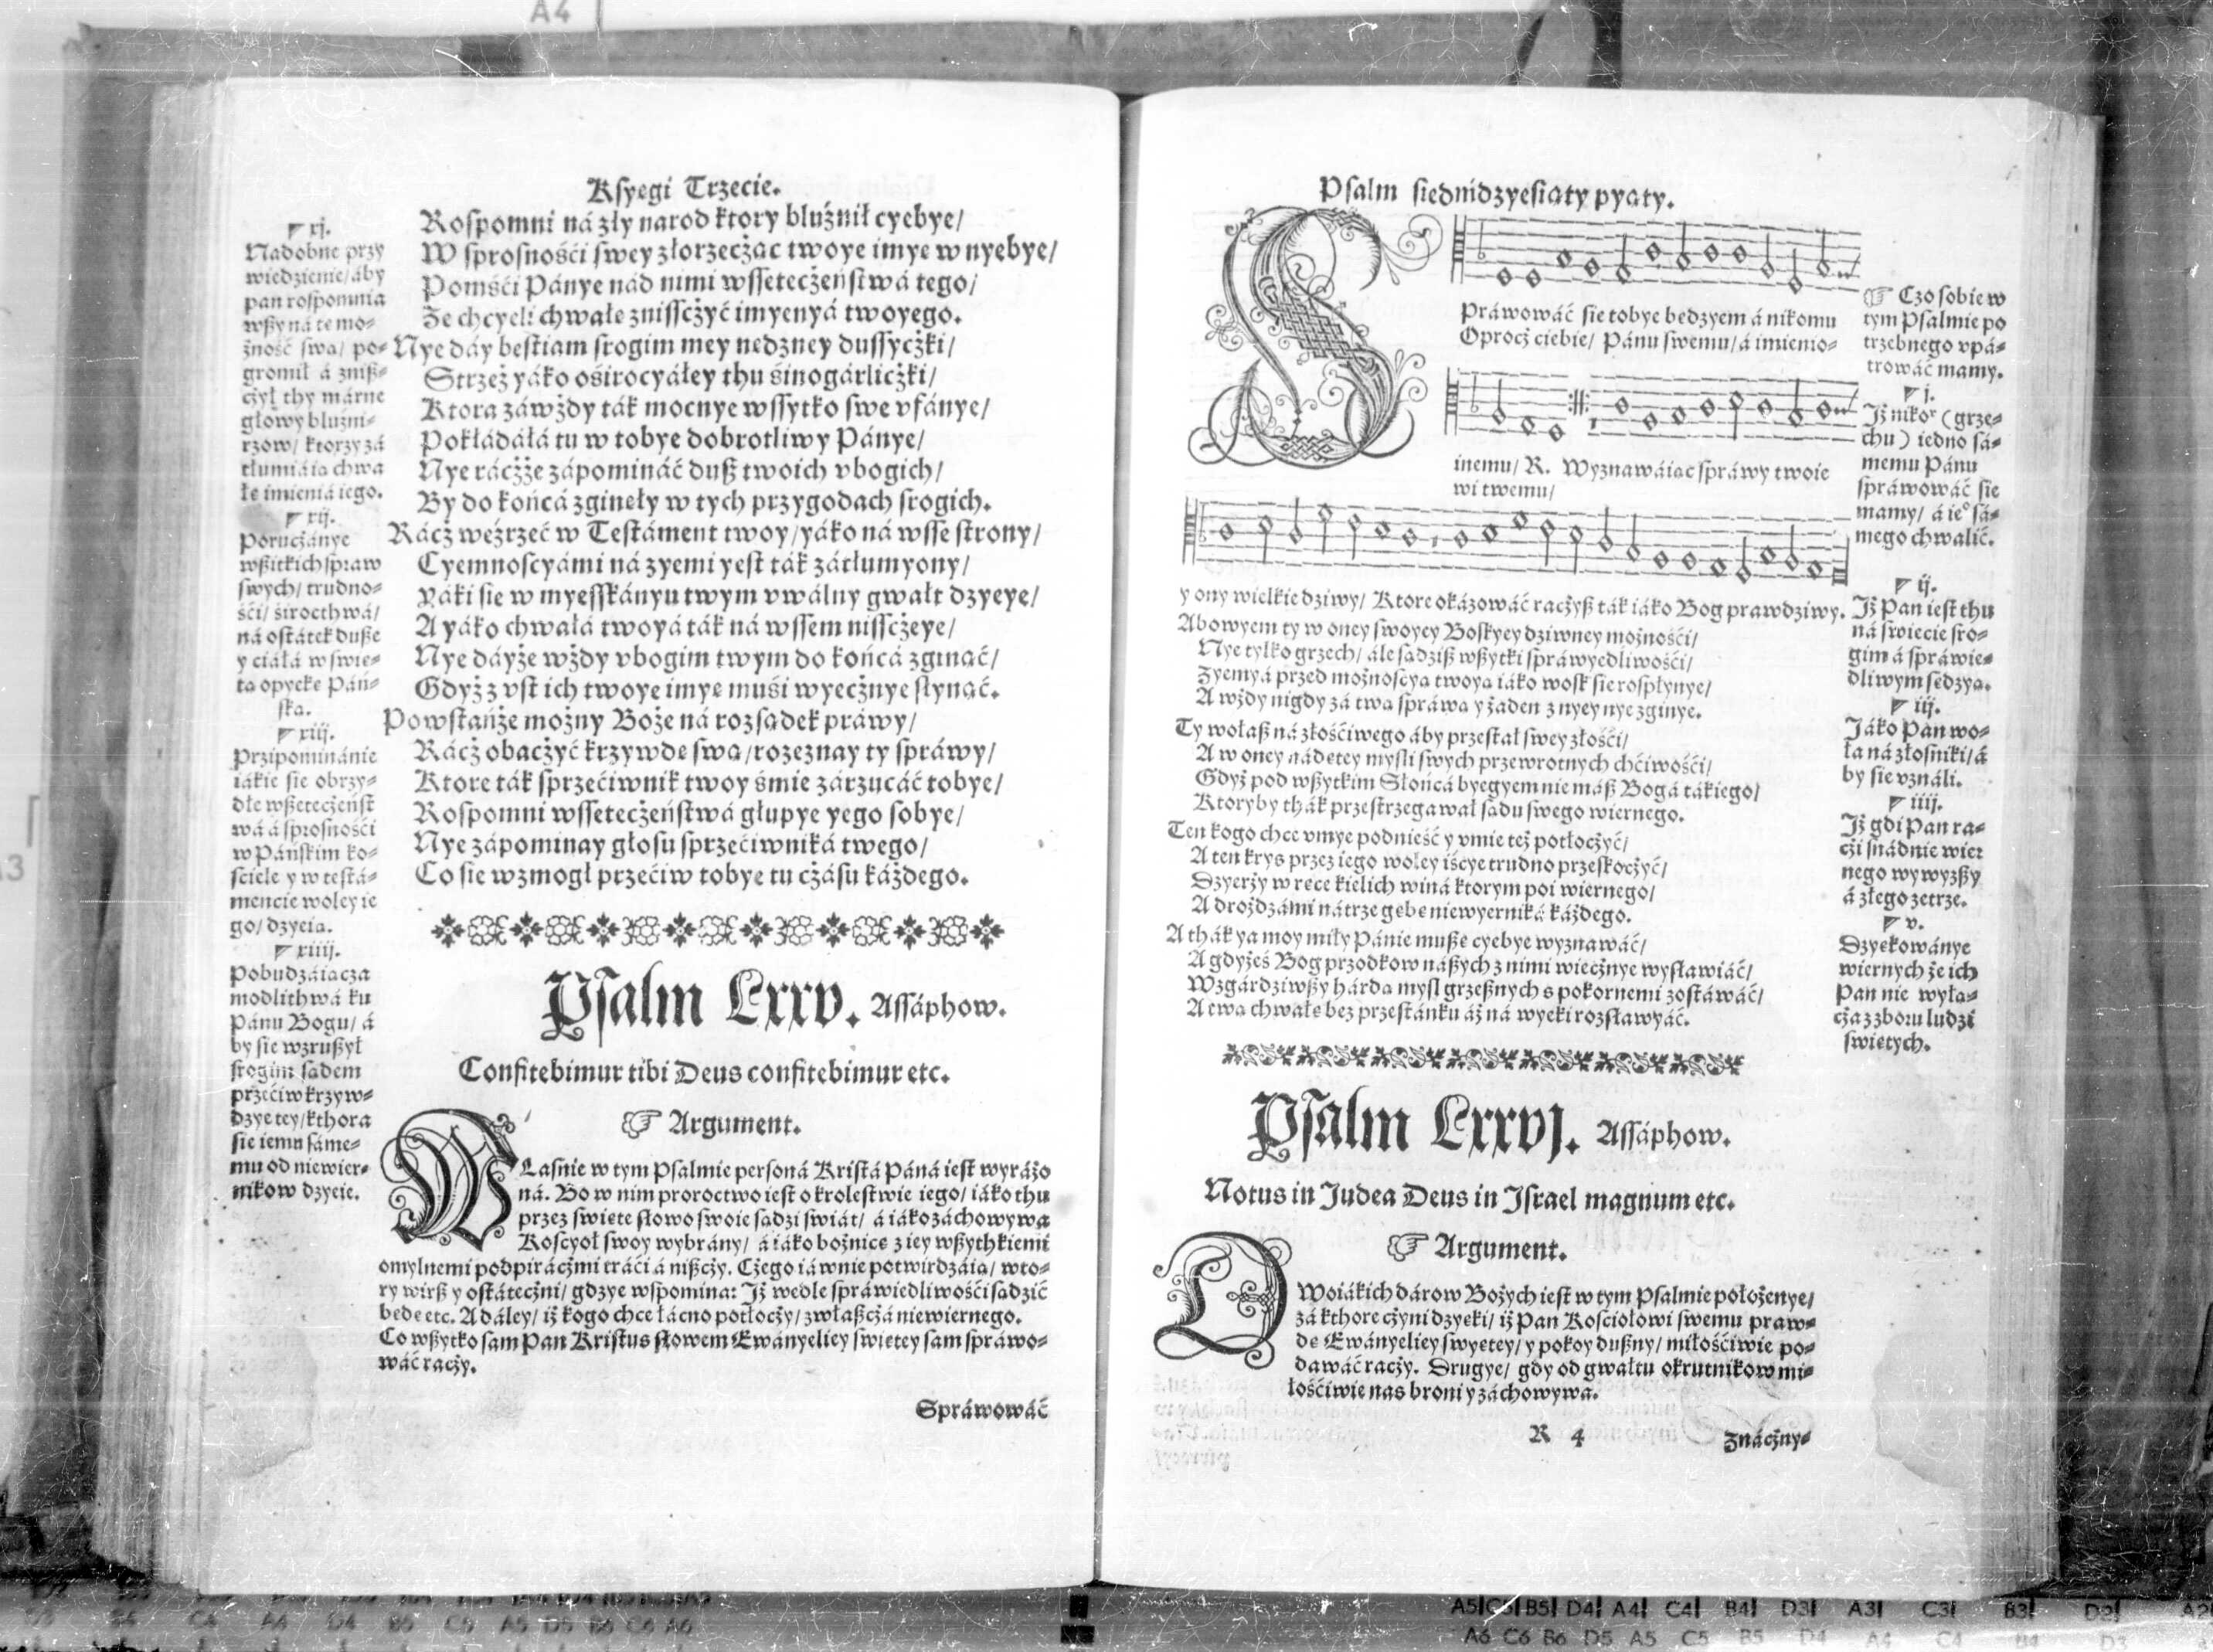 Ksyegi Trzecie.
Rospomni ná zły narod ktory bluźnił cyebye/
W sprosnośći swey złorzecżąc twoye imye w nyebye/
Pomśći Pánye nád nimi wssetecżeństwá tego/
Że chcyeli chwałę znisscżyć imyenyá twoyego.
Nye day bestiam srogim mey nędzney dussycżki/
Strzeż yáko ośirocyáłey thu śinogárlicżki/
Ktora záwżdy ták mocnye wssytko swe vfánye/
Pokłádáłá tu w tobye dobrotliwy Pánye/
Nye rácżże zápomináć dusz twoich vbogich/
By do końcá zginęły w tych przygodach srogich.
Rácż weźrzeć w Testáment twoy/ yáko ná wsse strony/
Cyemnoscyámi ná zyemi yest ták zátłumyony/
Yáki sie w myesskányu twym vwálny gwałt dzyeye/
A yáko chwałá twoyá ták ná wssem nisscżeye/
Nye dáyże wżdy vbogim twym do końcá zginąć/
Gdyż z vst ich twoye imye muśi wyecżnye słynąć.
Powstańże możny Boże ná rozsądek práwy/
Rácż obacżyć krzywdę swą/ rozeznay ty spráwy/
Ktore ták sprzećiwnik twoy śmie zárzucáć tobye/
Rospomni wssetecżeństwá głupye yego sobye/
Nye zápominay głosu sprzećiwniká twego/
Co sie wzmogł przećiw tobye tu cżásu káżdego.
xj.
Nadobne przy
wiedzienie/ áby
pan rospomniał
wszyná te mo-
żność swą/ po-
gromił á znisz-
cżył thy márne
głowy bluźni-
rzow/ ktorzy zá
tłumiáią chwa
łę imieniá iego.
xij.
Porucżánye
wszitkich spraw
swych/ trudno-
śći/ śirocthwá/
ná ostátek dusze
y ciáłá w świę-
tą opyekę Páń-
ską.
xiij.
Przipominánie
iákie sie obrzy-
dłe wszetecżeńst
wá á sprosnośći
w Páńskim ko-
sciele y w testá-
mencie woley ie
go/ dzyeią.
xiiij.
Pobudzáiącza
modlithwá ku
Pánu Bogu/ á
by sie wzruszył
srogim sądem
przećiw krzyw-
dzye tey/ kthora
sie iemu sáme-
mu od niewier-
nikow dzyeie.
Psalm Lxxv. Assáphow.
Confitebimur tibi Deus confitebimur etc.
Argument.
WLasnie w tym Psalmie personá Kristá Páná iest wyrázo
ná. Bo w nim proroctwo iest o krolestwie iego/ iáko thu
przez święte słowo swoie sądzi świát/ á iáko záchowywa
Koscyoł swoy wybrány/ á iáko bożnicę z iey wszythkiemi
omylnemi podpirácżmi tráći á niszcży. Cżego iáwnie potwirdzáią/ wto-
ry wirsz y ostátecżni/ gdzye wspomina: Jż wedle spráwiedliwośći sądzić
będę etc. A dáley/ iż kogo chce łácno potłocży/ zwłaszcżá niewiernego.
Co wszytko sam Pan Kristus słowem Ewányeliey świętey sam spráwo-
wáć racży.
Spráwowáć
Psalm siedmdzyesiąty pyąty.
SPráwowáć sie tobye będzyem á nikomu
Oprocż ciebie/ Pánu swemu/ á imienio-
inemu/ R. Wyznawáiąc spráwy twoie
wi twemu/
y ony wielkie dziwy/ Ktore okázowáć racżysz ták iáko Bog prawdziwy.
Abowyem ty w oney swoyey Boskyey dziwney możnośći/
Nye tylko grzech/ ále sądzisz wszytki spráwyedliwośći/
Zyemyá przed możnoscyą twoyą iáko wosk sie rospłynye/
A wżdy nigdy zá twą spráwą y żaden z nyey nye zginye.
Ty wołasz ná złośćiwego áby przestał swey złośći/
A w oney nádętey mysli swych przewrotnych chćiwośći/
Gdyż pod wszytkim Słońcá byegyem nie mász Bogá tákiego/
Ktoryby thák przestrzegawał sądu swego wiernego.
Ten kogo chce vmye podnieść y vmie też potłocżyć/
A ten krys przez iego woley iście trudno przeskocżyć/
Dzyerży w ręce kielich winá ktorym poi wiernego/
A drożdżámi nátrze gębę niewyerniká káżdego.
A thák ya moy miły Pánie muszę cyebye wyznawáć/
A gdyżeś Bog przodkow nászych z nimi wiecżnye wysławiáć/
Wzgárdziwszy hárdą mysl grzesznych s pokornemi zostáwáć/
A twą chwałę bez przestánku áż ná wyeki rozsławyáć.
Czo sobie w
tym Psalmie po
trzebnego vpá-
trowáć mamy.
j.
Jż nikoʳ (grze-
chu) iedno sá-
memu Pánu
spráwowáć sie
mamy/ á ieᵒ sá-
mego chwalić.
ij.
Jż Pan iest thu
ná świecie sro-
gim á spráwie-
dliwym sędzyą.
iij.
Jáko Pan wo-
ła ná złosniki/ á
by sie vználi.
iiij.
Jż gdi Pan ra-
cżi snádnie wier
nego wywyższy
á złego zetrze.
v.
Dzyękowánye
wiernych że ich
Pan nie wyłą-
cża z zboru ludzi
świętych.
Psalm Lxxvj. Assáphow.
Notus in Judea Deus in Israel magnum etc.
Argument.
DWoiákich dárow Bożych iest w tym Psalmie położenye/
zá kthore cżyni dzyęki/ iż Pan Kosciołowi swemu praw-
dę Ewányeliey swyętey/ y pokoy duszny/ miłośćiwie po-
dawáć racży. Drugye/ gdy od gwałtu okrutnikow mi-
łośćiwie nas broni y záchowywa.
R 4
Znácżny-
A4
A5 C5 B5 D4 A4 C4 B4 D3 A3 C3 B3 D2 A2
A6 C6 B6 D5 A5 C5 B5 D4 A4 C4 B4 D3